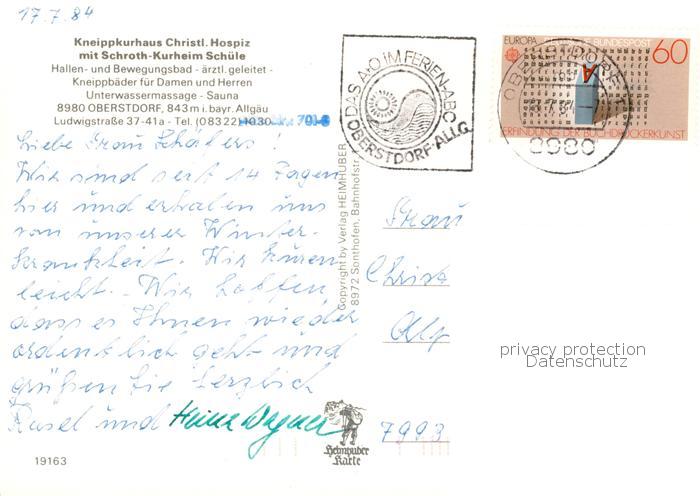 17.7.84
Kneippkurhaus Christl. Hospiz
mit Schroth-Kurheim Schüle
Hallen- und Bewegungsbad - ärztl. geleitet -
Kneippbäder für Damen und Herren
Unterwassermassage - Sauna
8980 OBERSTDORF, 843 m i. bayr. Allgäu
Ludwigstraße 37-41a - Tel. (08322) 1030
701-0
Liebe Frau Schäfers!
Wir sind seit 14 Tagen
hier und erholen uns
von unserer Winter-
krankheit. Wir kuren
leicht. Wir hoffen,
dass es Ihnen wieder
ordentlich geht und
grüßen Sie herzlich
und Heinz Wagner
19163
Copyright by Verlag HEIMHUBER
8972 Sonthofen, Bahnhofstr.
DAS A+O IM FERIEN-ABC
OBERSTDORF·ALLG.
EUROPA BUNDESPOST 60
ERFINDUNG DER BUCHDRUCKERKUNST
OBERSTDORF
8980
Frau
Christa
7993
Heimhuber
Karte
privacy protection
Datenschutz